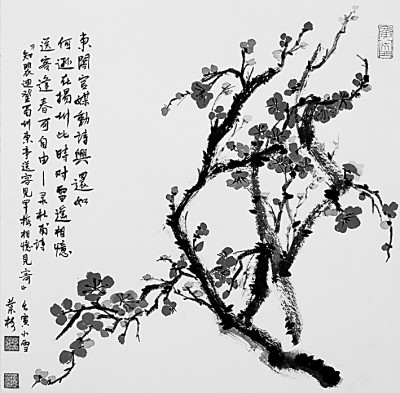 東閣官楳動詩興還如
何遜在揚州此時对雪遥相憶
送客逢春可自由—录杜甫詩
《和裴迪登蜀州東亭送客見早梅相憶見寄》壬寅小雪